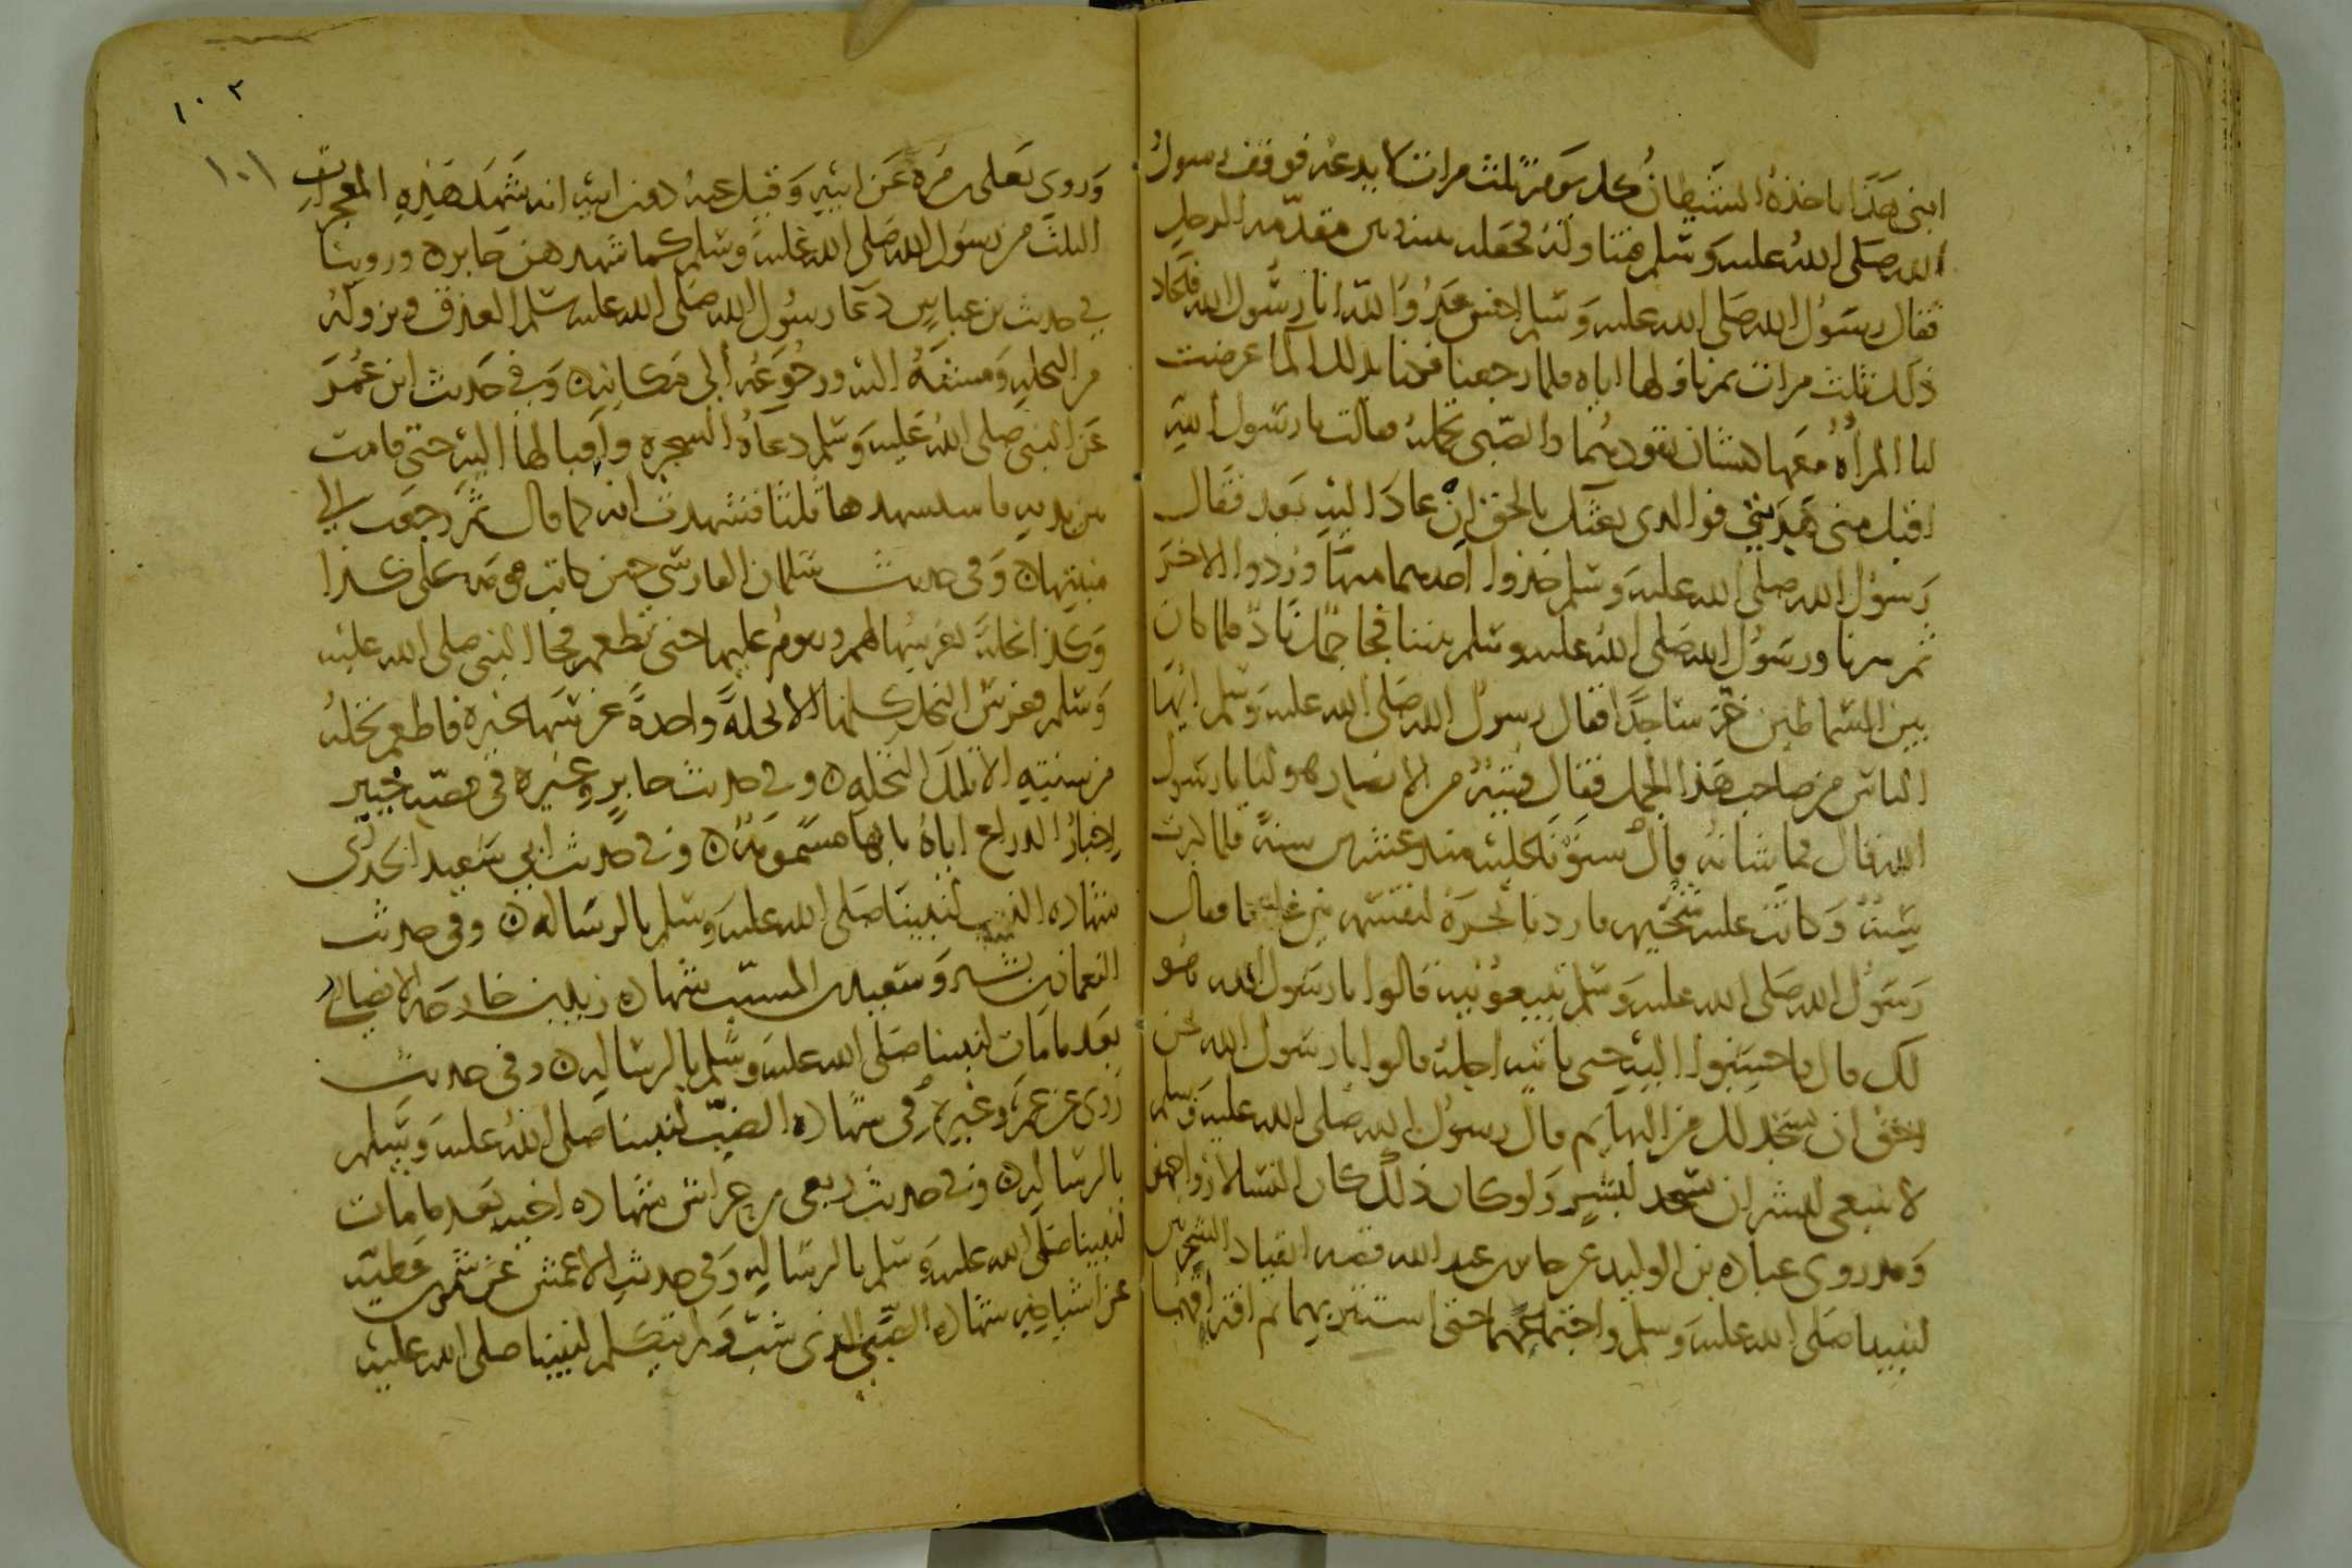 ابنى هذا ياخذه الشيطان كل يوم ثلث مرات لا يدعه فوقف رسول
الله صلى الله عليه وسلم فتناوله فجعله بينه وبين مقدمة الرحل
فقال رسول الله صلى الله عليه وسلم اخس عدو الله انا رسول الله فاعاد
ذلك ثلث مرات ثم ناولها اياه فلما رجعنا فكنا بذلك الما عرضت
لنا المراة معها كبشان تقودهما والصبى تحمله فقالت يا رسول الله
اقبل منى هديتي فوالدى بعثك بالحق ان عاد اليه بعد فقال
رسول الله صلى الله عليه وسلم خذوا احدهما منها وردوا الاخر
ثم سرنا ورسول الله صلى الله عليه وسلم بيننا فجا جمل ناد فلما كان
بين السماطين خر ساجدا فقال رسول الله صلى الله عليه وسلم ايها
الناس من صاحب هذا الجمل فقال فتية من الانصار هو لنا يا رسول
الله قال فما شانه قال سنونا عليه منذ عشرين سنة فلما كبرت
سنه وكانت عليه شحيمة فاردنا نحره لنقسمه بين غلمتنا فقال
رسول الله صلى الله عليه وسلم تبيعونيه قالوا يا رسول الله هو
لك قال فاحسنوا اليه حتى ياتيه اجله قالوا يا رسول الله نحن
احق ان نسجد لك من البهايم قال رسول الله صلى الله عليه وسلم
لا ينبغى لبشر ان يسجد لبشر ولو كان ذلك كان النسا لازواجهن
وقد روى عبادة بن الوليد عن جابر بن عبد الله قصة انقياد الشجرتين
لنبينا صلى الله عليه وسلم واجتماعهما حتى استتر بهما ثم افتراقهما
١٠٢
١٠١
وروى يعلى بن مرة عن ابيه وقيل عنه دون ابيه انه شهد هذه المعجزات
الثلث من رسول الله صلى الله عليه وسلم كما شهدهن جابر ه وروينا
في حديث بن عباس دعا رسول الله صلى الله عليه وسلم العذق ونزوله
من النخلة ومشيه اليه ورجوعه الى مكانه ه وفي حديث ابن عمر
عن النبى صلى الله عليه وسلم دعاه الشجرة واقبالها اليه حتى قامت
بين يديه فاستشهدها ثلثا فشهدت انه كما قال ثم رجعت الى
منبتها ه وفى حديث سلمان الفارسى حين كاتب قومه على كذا
وكذا نخلة يغرسها لهم ويقوم عليها حتى تطعم فجا النبى صلى الله عليه
وسلم فغرس النخل كلها الا نخلة واحدة غرسها غيره فاطعم نخله
من سنته الا تلك النخلة ه وفي حديث جابر وغيره فى قصة خيبر
اخبار الذراع اياه بانها مسمومة ه وفى حديث ابي سعيد الخدرى
شهادة الذيب لنبينا صلى الله عليه وسلم بالرسالة ه وفى حديث
النعمان بن بشير وسعيد بن المسيب شهادة زيد بن خارجة الانصارى
بعد ما مات لنبينا صلى الله عليه وسلم بالرسالة ه وفى حديث
روى عن عمر وغيره فى شهادة الضب لنبينا صلى الله عليه وسلم
بالرسالة ه وفى حديث ربعى بن حراش شهادة اخيه بعد ما مات
لنبينا صلى الله عليه وسلم بالرسالة وفى حديث الاعمش عن شمر بن عطية
عن اشياخه شهادة الصبى الذى شب ولم يتكلم لنبينا صلى الله عليه